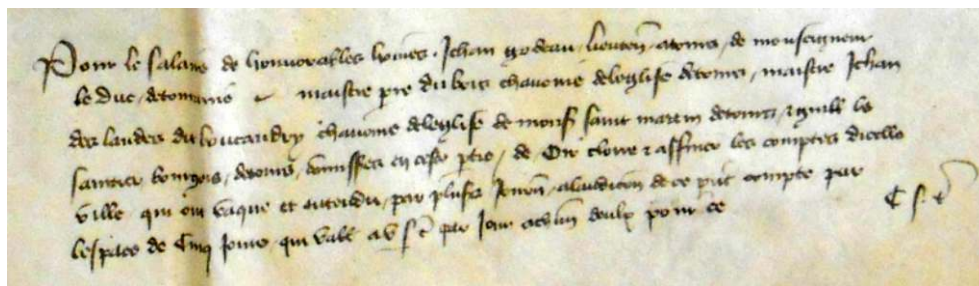 Pour le salaire de honnorables hommes Jehan godeau lieuten atours de monseigneur
le duc detouraine maistre pre dubois chanoine deleglise detours maistre Jehan
des landes dit boucaudry chanoine deleglise de monsr saint martin detours &
bourgois detours commisses en ceste ptie de Oir clorre & affiner les comptes dicelle
ville qui ont vaque et entendu par plusrs Journ alaudicion de ce pnt compte par
lespace de Cinq Jours qui vall a par Jour achun deulx pour ce C s. t